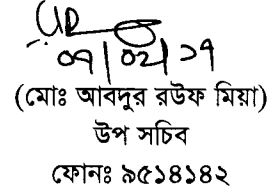 ০৭|০২|১৭
(মোঃ আবদুর রউফ মিয়া)
উপ সচিব
ফোনঃ ৯৫১৪১৪২